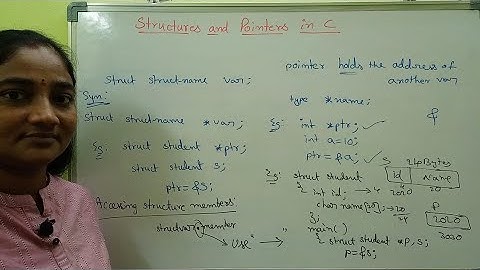 Structures and Pointers in C
struct struct-name var;
Syn:
struct struct-name *var;
Eg: struct student *ptr;
struct student s;
ptr=&s;
Accessing structure members:
structvar.member
Use " "
pointer holds the address of
another var
type *name;
&
Eg: int *ptr; ✓
int a=10; ✓
ptr=&a; ✓
s 24Bytes
id name
2020 20
Eg: struct student
{ int id; → 4
char name[20]; → 20
24
};
main()
{ struct student *p, s;
p=&s;
p
2020
3030